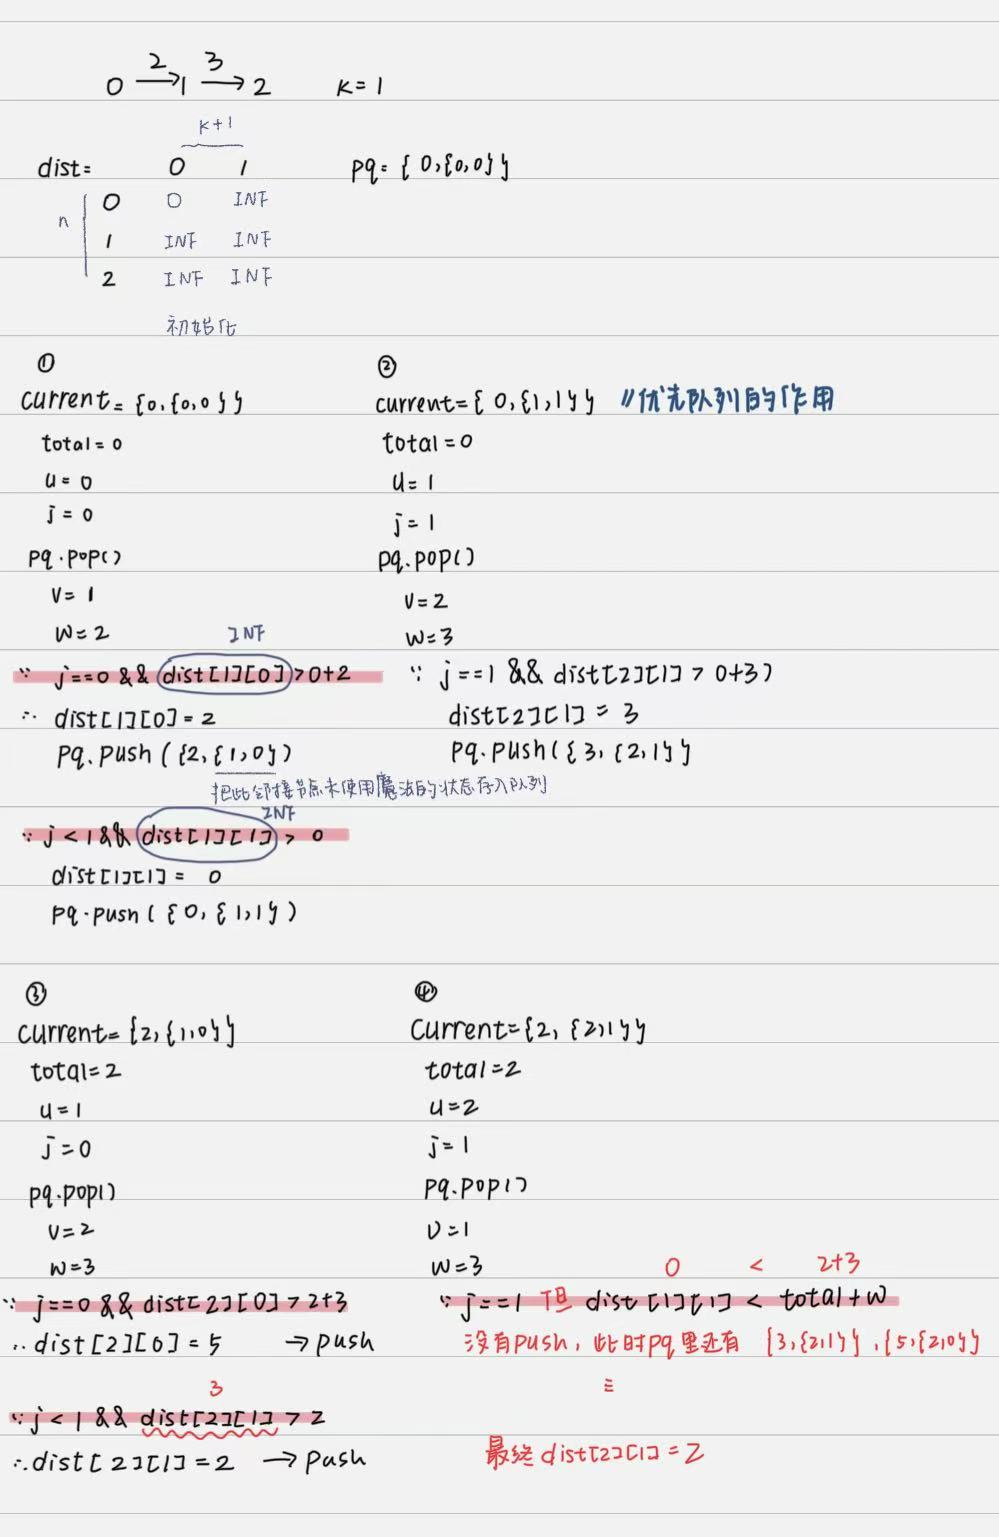 2 3
0 → 1 → 2 K=1
K+1
dist= 0 1 pq={0,{0,0}}
n
0 0 INF
1 INF INF
2 INF INF
初始化
①
current={0,{0,0}}
total=0
u=0
j=0
pq.pop()
v=1
w=2
INF
∵ j==0 && dist[1][0]>0+2
∴ dist[1][0]=2
pq.push({2,{1,0})
把此邻接节点未使用魔法的状态存入队列
INF
∵ j<1 && dist[1][1]>0
dist[1][1]=0
pq.push({0,{1,1})
②
current={0,{1,1}} //优先队列的作用
total=0
u=1
j=1
pq.pop()
v=2
w=3
∵ j==1 && dist[2][1]>0+3)
dist[2][1]=3
pq.push({3,{2,1}}
③
current={2,{1,0}}
total=2
u=1
j=0
pq.pop()
v=2
w=3
∵ j==0 && dist[2][0]>2+3
∴ dist[2][0]=5 → push
3
∵ j<1 && dist[2][1]>2
∴ dist[2][1]=2 → push
④
current={2,{2,1}}
total=2
u=2
j=1
pq.pop()
v=1
w=3
0 < 2+3
∵ j==1 但 dist[1][1] < total+w
没有push，此时pq里还有 {3,{2,1}},{5,{2,0}}
最终dist[2][1]=2